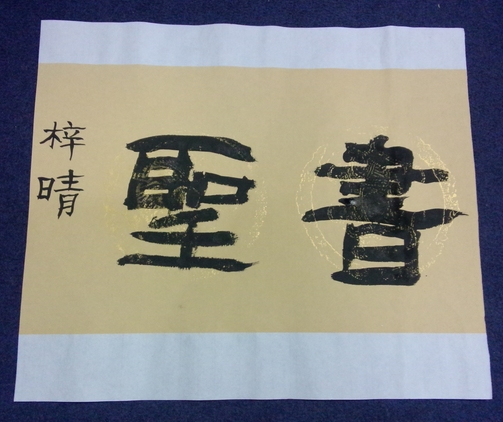 書聖
梓晴